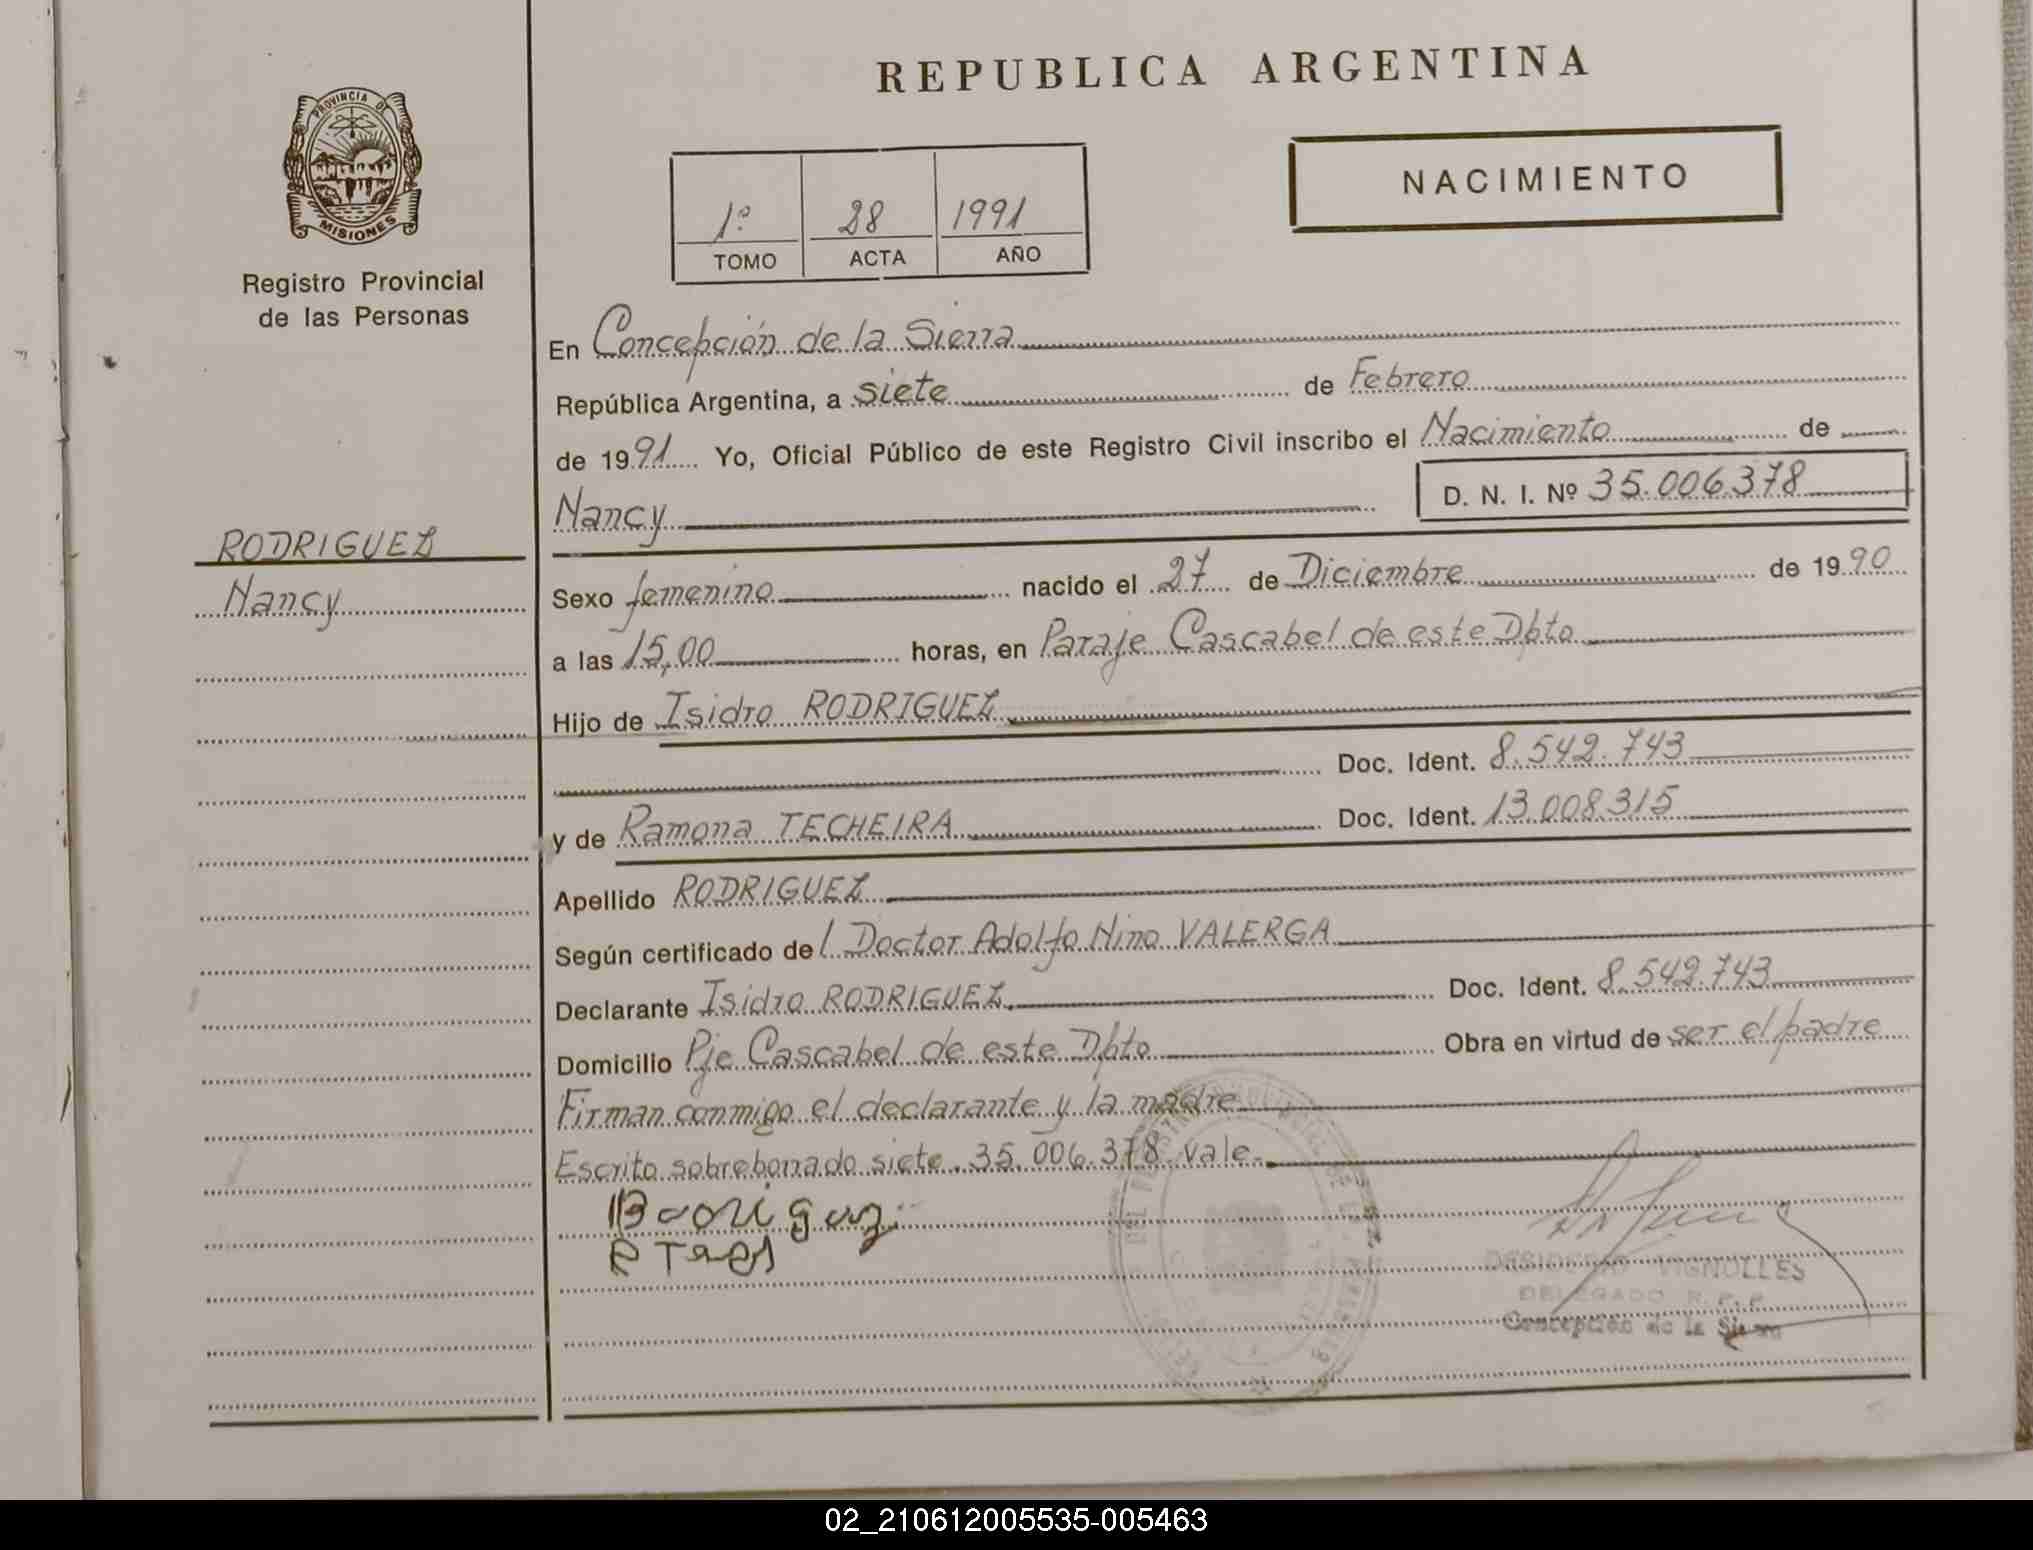 REPUBLICA ARGENTINA
PROVINCIA DE
MISIONES
Registro Provincial
de las Personas
NACIMIENTO
1º 28 1991
TOMO ACTA AÑO
En Concepción de la Sierra
República Argentina, a siete de Febrero
de 1991 Yo, Oficial Público de este Registro Civil inscribo el Nacimiento de
Nancy D. N. I. Nº 35.006.378
RODRIGUEZ
Nancy
Sexo femenino nacido el 27 de Diciembre de 1990
a las 15,00 horas, en Paraje Cascabel de este Dpto
Hijo de Isidro RODRIGUEZ
Doc. Ident. 8.542.743
y de Ramona TECHEIRA Doc. Ident. 13.008.315
Apellido RODRIGUEZ
Según certificado del Doctor Adolfo Nino VALERGA
Declarante Isidro RODRIGUEZ Doc. Ident. 8.542.743
Domicilio Pje Cascabel de este Dpto Obra en virtud de ser el padre
Firman conmigo el declarante y la madre
Escrito sobreborrado siete. 35.006.378 vale.-
DESIDERIO VIGNOLLES
DELEGADO R. P. P.
Concepción de la Sierra
02_210612005535-005463